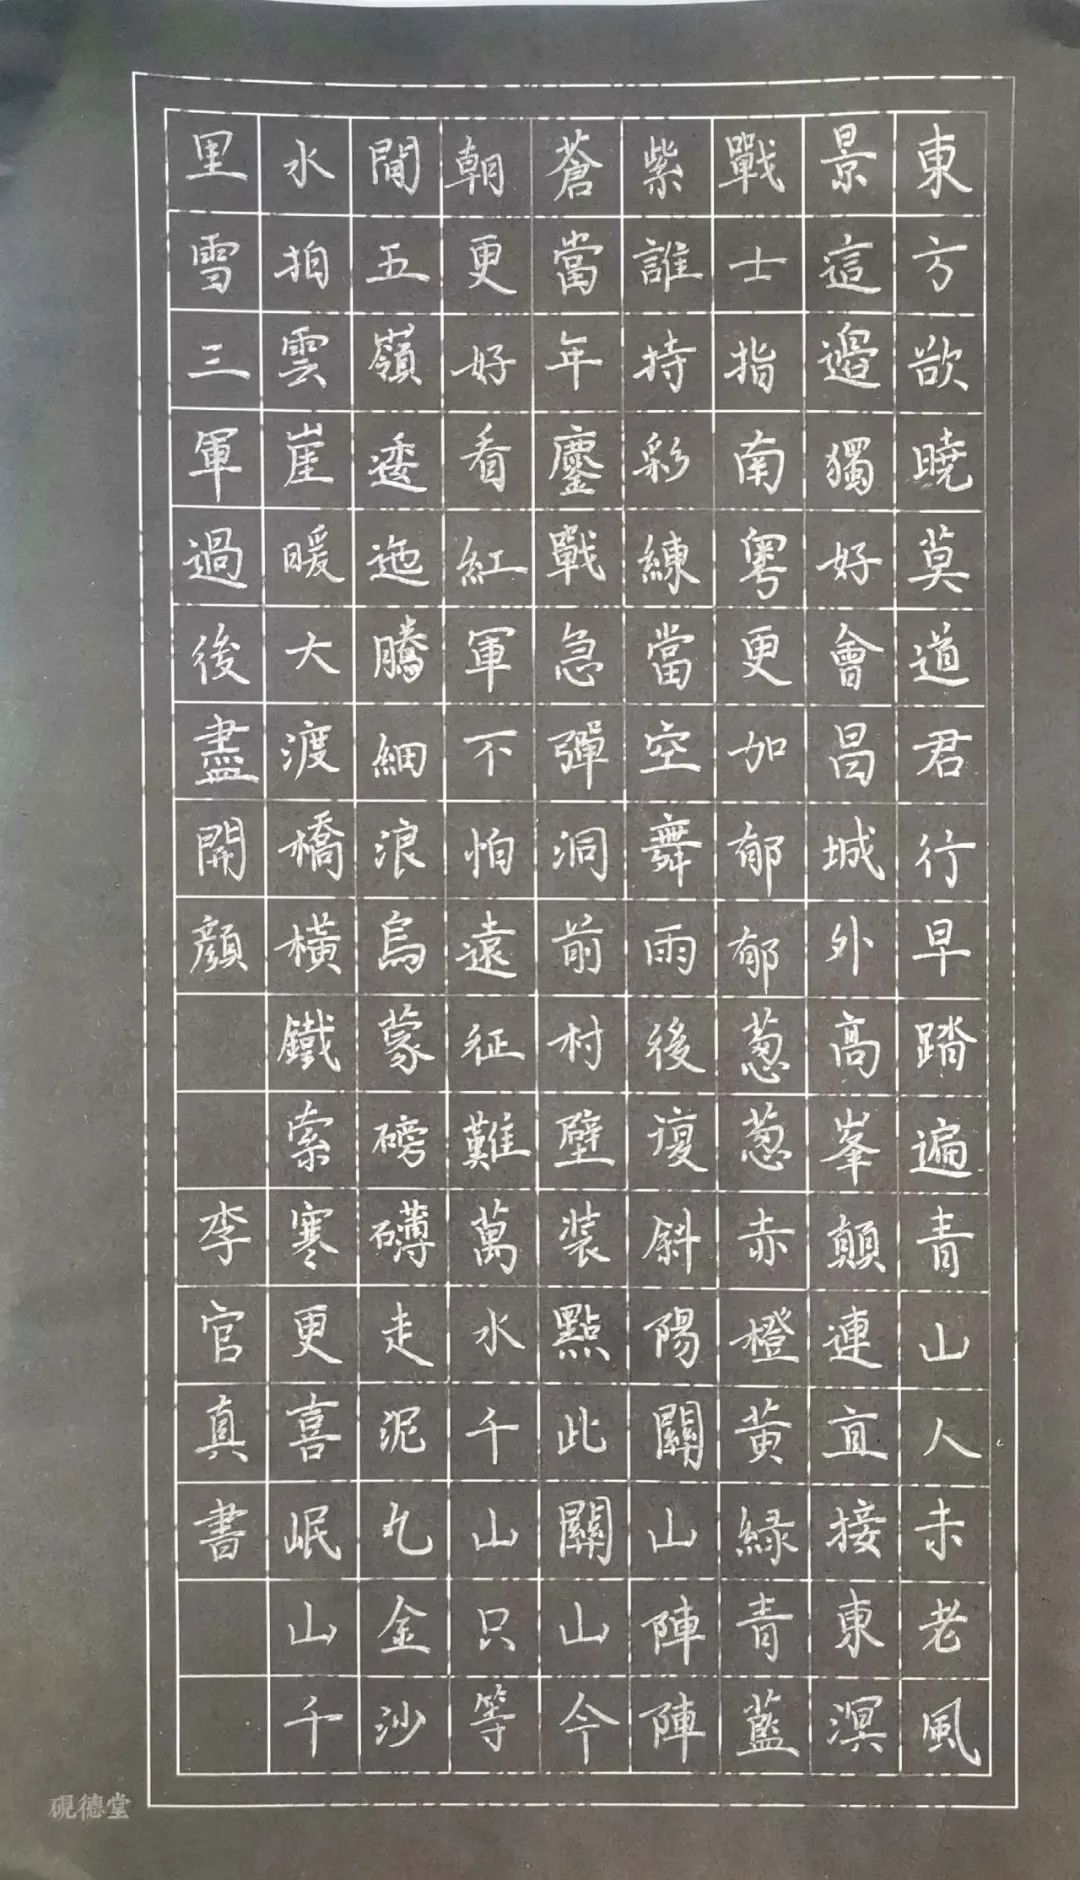 東方欲曉莫道君行早踏遍青山人未老風
景這邊獨好會昌城外高峯顛連直接東溟
戰士指南粵更加郁郁蔥蔥赤橙黃綠青藍
紫誰持彩練當空舞雨後復斜陽關山陣陣
蒼當年鏖戰急彈洞前村壁装點此關山今
朝更好看紅軍不怕遠征難萬水千山只等
閒五嶺逶迤騰細浪烏蒙磅礴走泥丸金沙
水拍雲崖暖大渡橋橫鐵索寒更喜岷山千
里雪三軍過後盡開顏李官真書
硯德堂